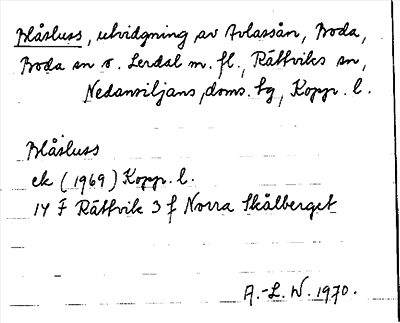 Blåsluss, utvidgning av Avlassån, Boda,
Boda sn o. Lerdal m. fl., Rättviks sn,
Nedansiljans doms. tg, Kopp. l.
Blåsluss
ek (1969) Kopp. l.
14 F Rättvik 3 f Norra Skålberget
A.-L. W. 1970.